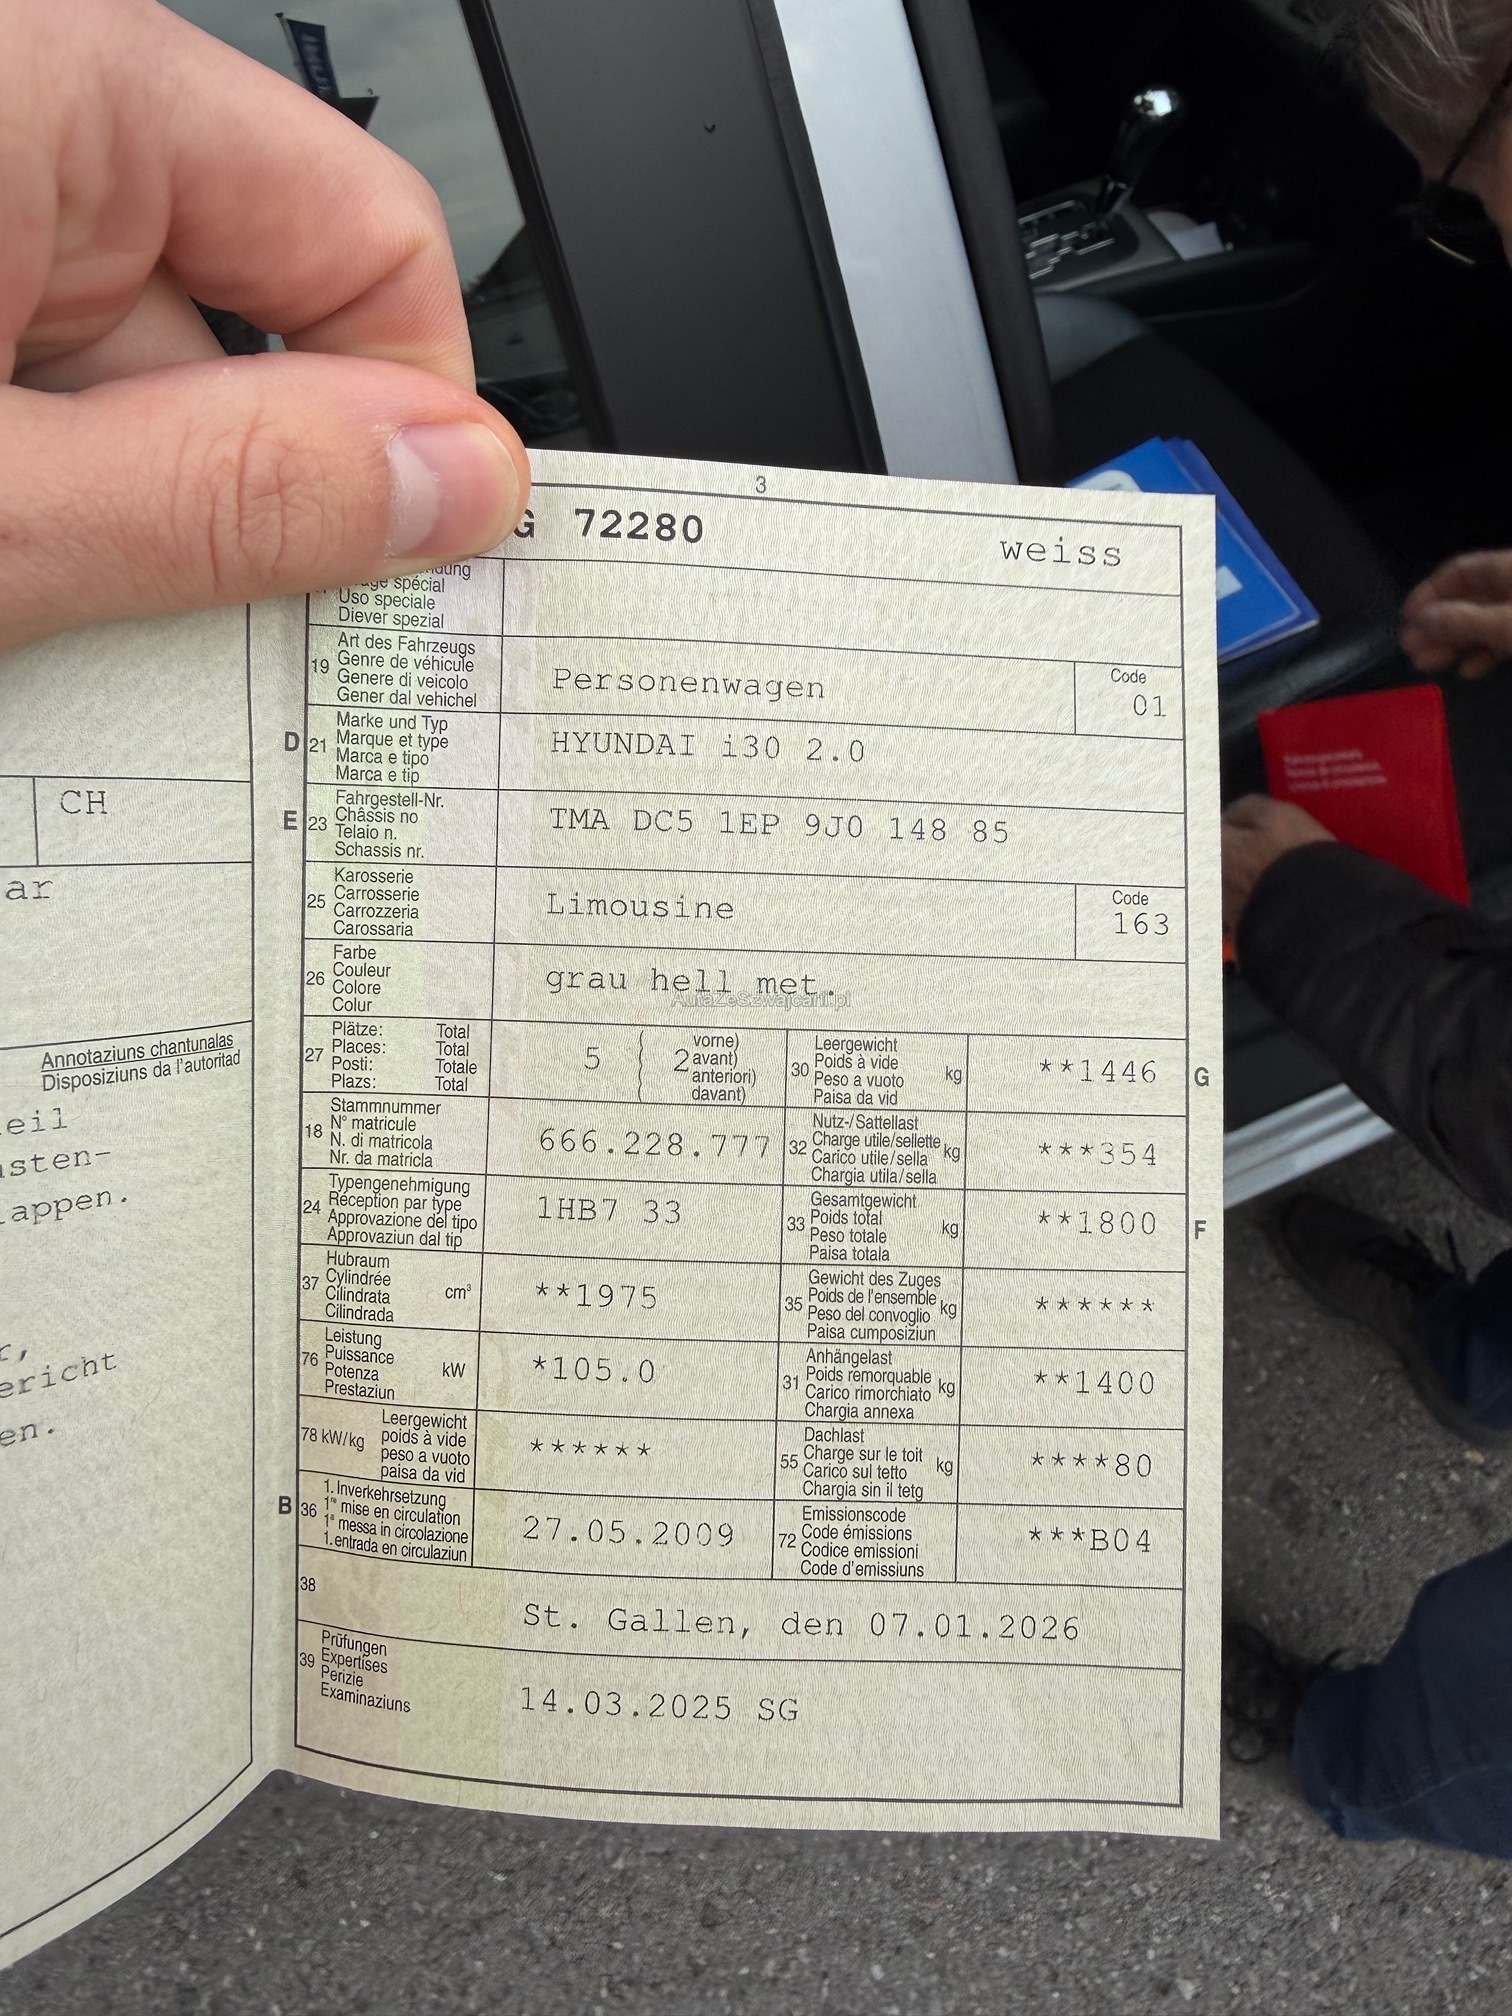 3
G 72280
weiss
spécial
Uso speciale
Diever spezial
19
Art des Fahrzeugs
Genre de véhicule
Genere di veicolo
Gener dal vehichel
Personenwagen
Code
01
D
21
Marke und Typ
Marque et type
Marca e tipo
Marca e tip
HYUNDAI i30 2.0
E
23
Fahrgestell-Nr.
Châssis no
Telaio n.
Schassis nr.
TMA DC5 1EP 9J0 148 85
25
Karosserie
Carrosserie
Carrozzeria
Carossaria
Limousine
Code
163
26
Farbe
Couleur
Colore
Colur
grau hell met.
AutaZeSzwajcarii.pl
27
Plätze: Total
Places: Total
Posti: Totale
Plazs: Total
5
2
vorne)
avant)
anteriori)
davant)
30
Leergewicht
Poids à vide
Peso a vuoto
Paisa da vid
kg
**1446
G
18
Stammnummer
N° matricule
N. di matricola
Nr. da matricla
666.228.777
32
Nutz-/Sattellast
Charge utile/sellette
Carico utile/sella
Chargia utila/sella
kg
***354
24
Typengenehmigung
Réception par type
Approvazione del tipo
Approvaziun dal tip
1HB7 33
33
Gesamtgewicht
Poids total
Peso totale
Paisa totala
kg
**1800
F
37
Hubraum
Cylindrée
Cilindrata
Cilindrada
cm³
**1975
35
Gewicht des Zuges
Poids de l'ensemble
Peso del convoglio
Paisa cumposiziun
kg
******
76
Leistung
Puissance
Potenza
Prestaziun
kW
*105.0
31
Anhängelast
Poids remorquable
Carico rimorchiato
Chargia annexa
kg
**1400
78 kW/kg
Leergewicht
poids à vide
peso a vuoto
paisa da vid
******
55
Dachlast
Charge sur le toit
Carico sul tetto
Chargia sin il tetg
kg
****80
B
36
1. Inverkehrsetzung
1re mise en circulation
1a messa in circolazione
1. entrada en circulaziun
27.05.2009
72
Emissionscode
Code émissions
Codice emissioni
Code d'emissiuns
***B04
38
St. Gallen, den 07.01.2026
39
Prüfungen
Expertises
Perizie
Examinaziuns
14.03.2025 SG
CH
ar
Annotaziuns chantunalas
Disposiziuns da l'autoritad
eil
sten-
appen.
r,
ericht
en.